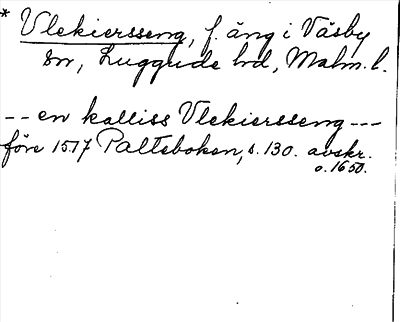 * Vlekiersseng, f. äng i Väsby
sn, Luggude hd, Malm. l.
-- en kalliss Vlekiersseng ---
före 1517 Palteboken, s. 130. avskr.
o. 1650.